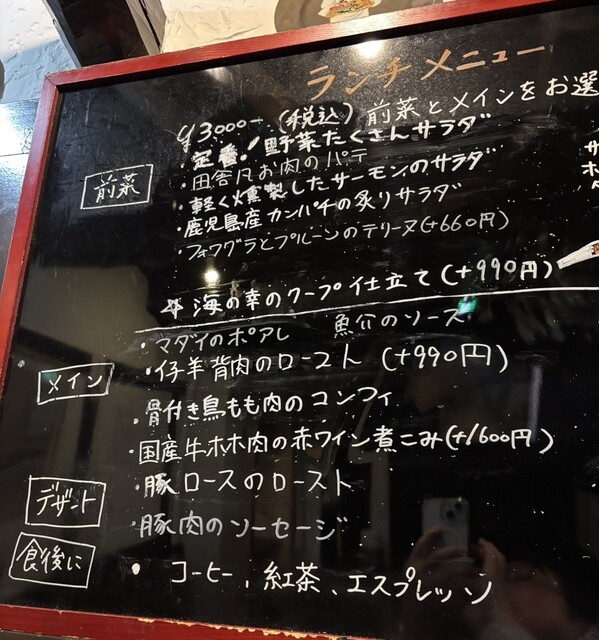 ランチメニュー
¥3000-(税込)前菜とメインをお選
・定番！野菜たくさんサラダ
前菜
・田舎風お肉のパテ
・軽く燻製したサーモンのサラダ
・鹿児島産カンパチの炙りサラダ
・フォワグラとプルーンのテリーヌ(+660円)
海の幸のクープ仕立て(+990円)
・マダイのポアレ 魚介のソース
メイン
・仔羊背肉のロースト(+990円)
・骨付き鳥もも肉のコンフィ
・国産牛ホホ肉の赤ワイン煮こみ(+1600円)
・豚ロースのロースト
デザート
・豚肉のソーセージ
食後に
・コーヒー、紅茶、エスプレッソ
サ
ホ